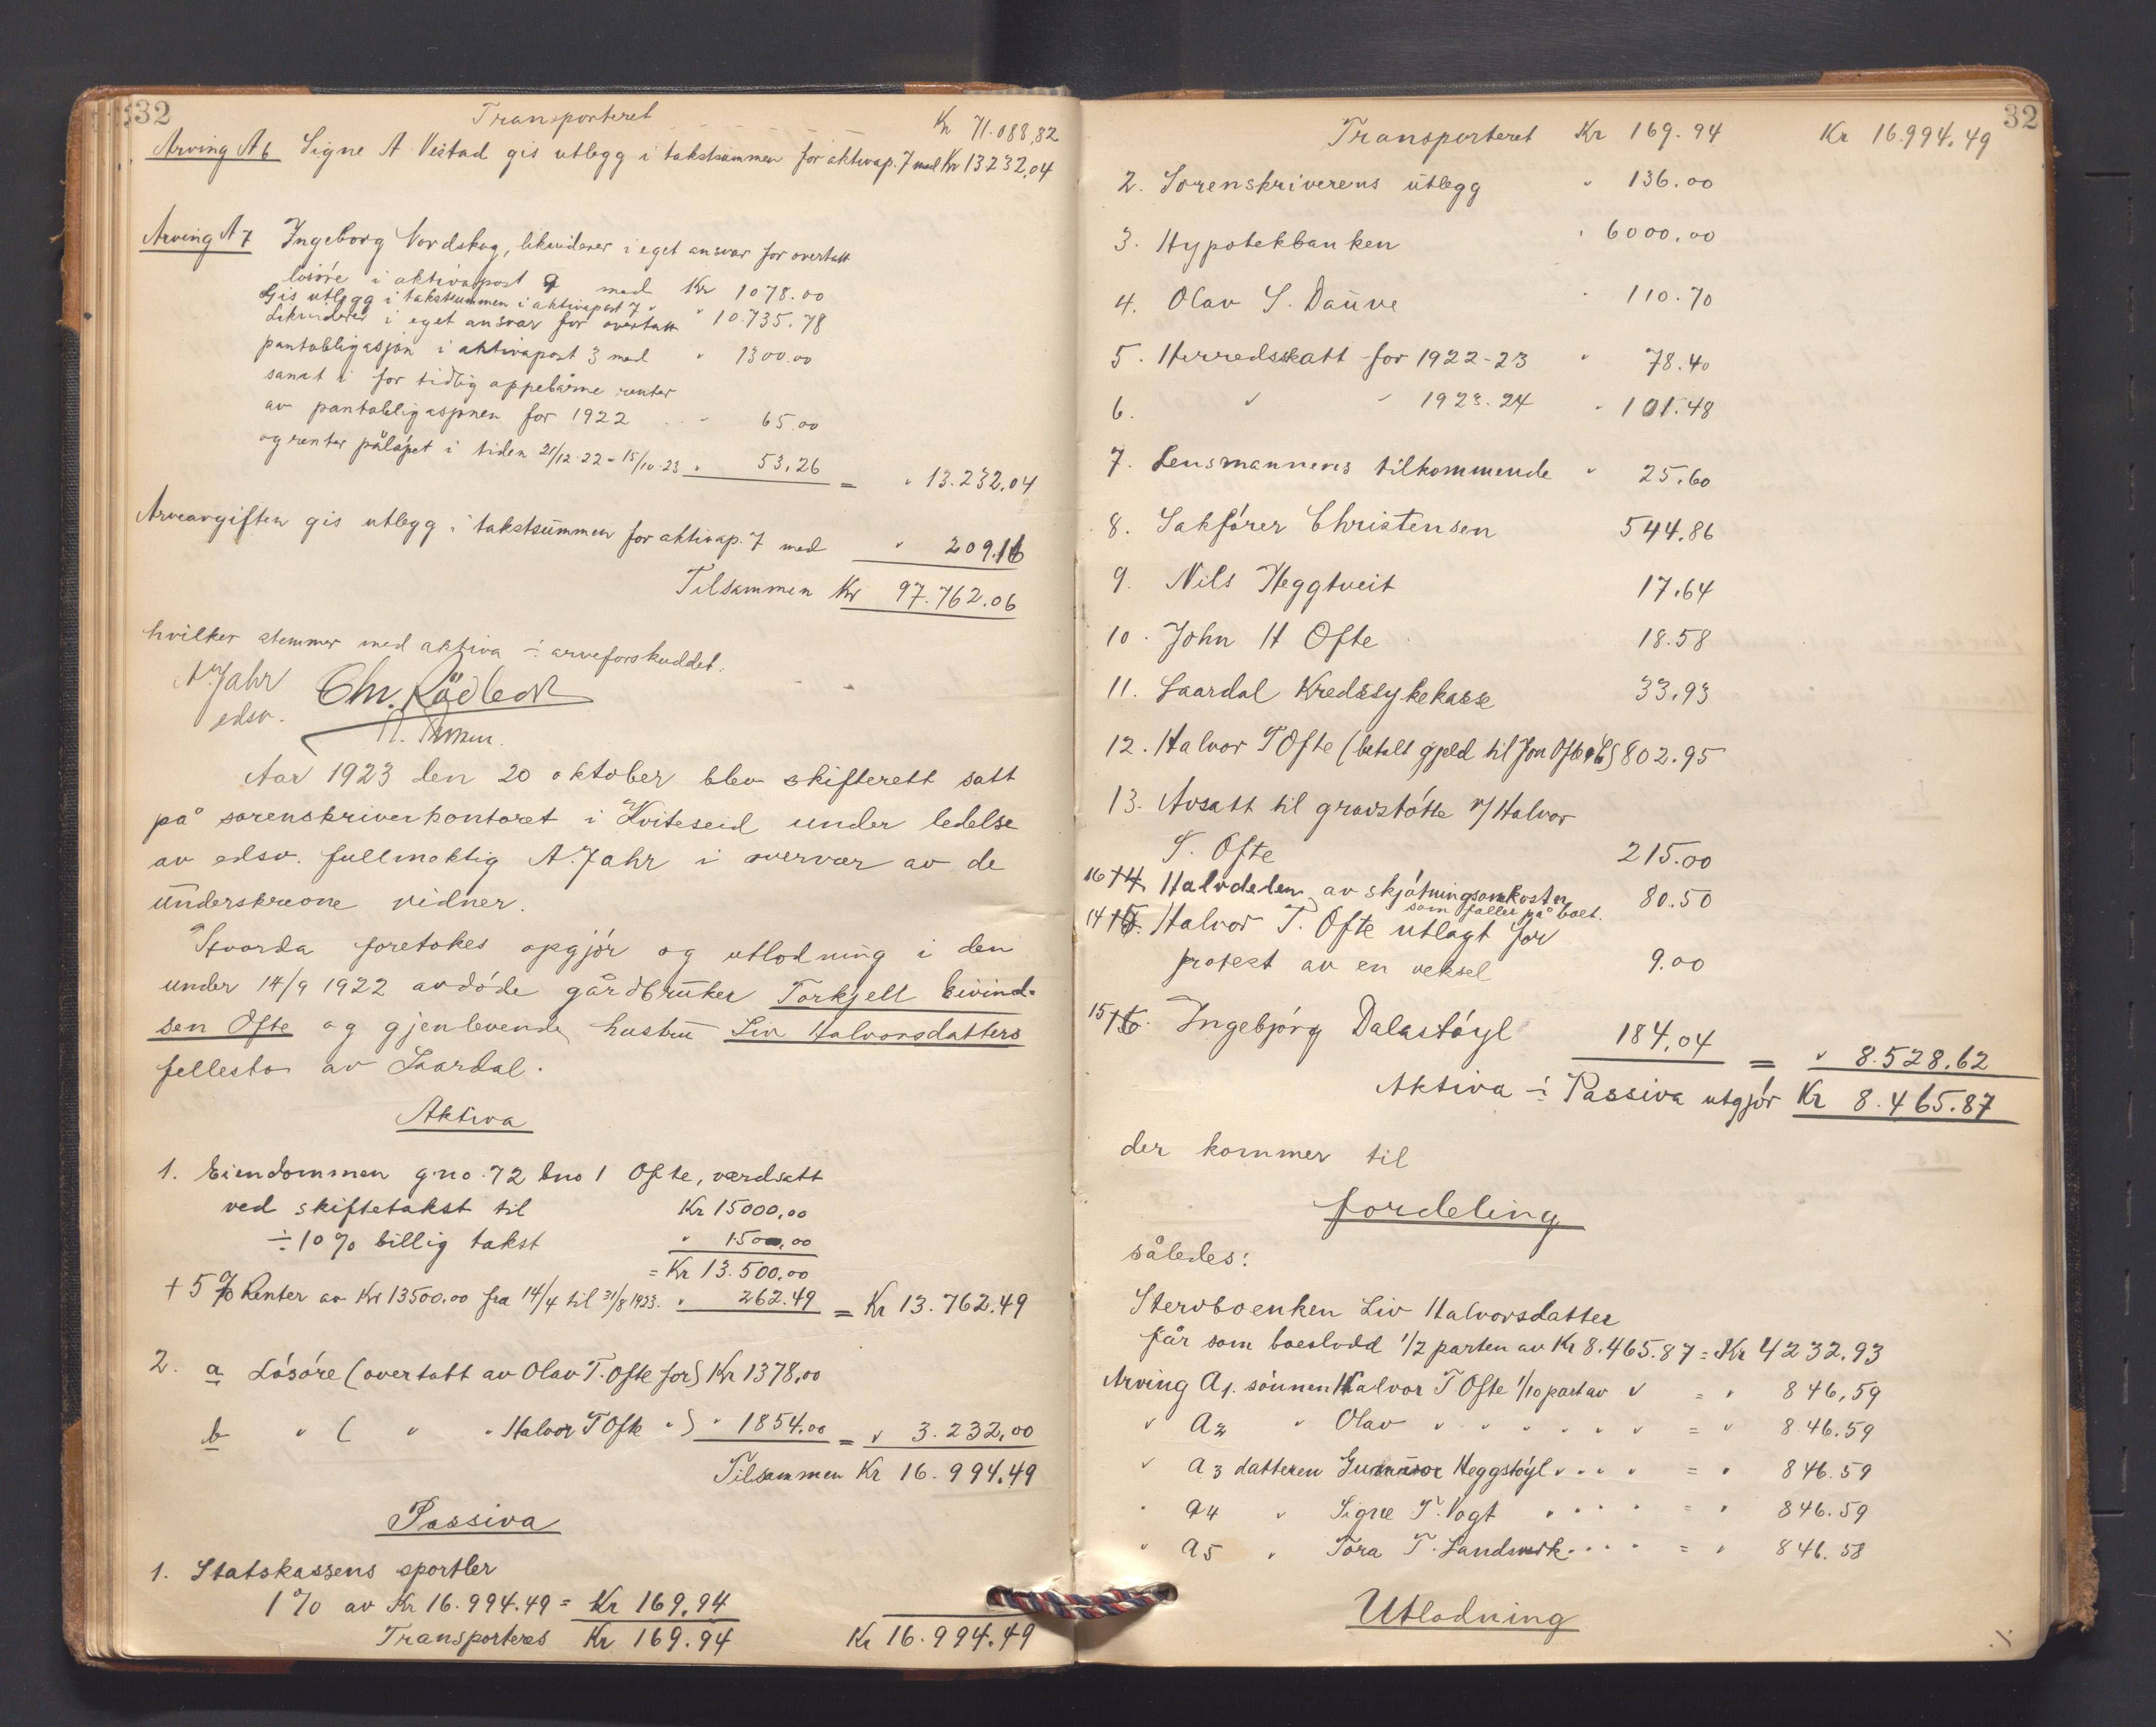 32
Transporteret Kr 71.088,82
Arving A6 Signe A Vestad gis utlegg i takstsummen for aktivap. 7 med Kr 13232,04
Arving A7 Ingeborg Nordskog, likviderer i eget ansvar for overtatt
løsøre i aktivapost 9 med Kr 1078.00
Gis utlegg i takstsummen i aktivapost 7 " " 10.735.78
Likviderer i eget ansvar for overtatt
pantobligasjon i aktivapost 3 med " 1300.00
samt i for tidlig oppebårne renter
av pantobligasjonen for 1922 . . " 65.00
og renter påløpet i tiden 21/12-22 - 15/10-23 " 53,26 = " 13.232,04
Arveavgiften gis utlegg i takstsummen for aktivap. 7 med " 209.16
Tilsammen Kr 97.762.06
hvilket stemmer med aktiva ÷ arveforskuddet.
A. Jahr
edsv.
Aar 1923 den 20 oktober blev skifterett satt
på sorenskriverkontoret i Kviteseid under ledelse
av edsv. fullmektig A. Jahr i overvær av de
underskrevne vidner.
Hvorda foretokes opgjør og utlodning i den
under 14/9 1922 avdøde gårdbruker Torkjell Eivind-
sen Ofte og gjenlevende hustru Liv Halvorsdatters
fellesbo av Laardal.
Aktiva
1. Eiendommen g.no. 72 bno 1 Ofte, værdsatt
ved skiftetakst til Kr 15000,00
÷ 10 % billig takst " 1500,00
= Kr 13.500,00
+ 5 % Renter av Kr 13500.00 fra 14/4 til 31/8 1923. " 262.49 = Kr 13.762.49
2. a Løsøre (overtatt av Olav T. Ofte for) Kr 1378,00
b " ( " " Halvor T Ofte " ) " 1854.00 = " 3.232,00
Tilsammen Kr 16.994.49
Passiva
1. Statskassens sportler
1 % av Kr 16.994.49 = Kr 169,94
Transporteres Kr 169.94 Kr 16.994.49
32
Transporteret Kr 169.94 Kr 16.994,49
2. Sorenskriverens utlegg " 136.00
3. Hypotekbanken " 6000,00
4. Olav S. Dauve " 110.70
5. Herredsskatt for 1922-23 " 78.40
6. " " 1923.24 " 101.48
7. Lensmannens tilkommende " 25,60
8. Sakfører Christensen 544.86
9. Nils Heggtveit 17,64
10. John H Ofte 18.58
11. Laardal Kredssykekasse 33,93
12. Halvor T Ofte (betalt gjeld til Jon Ofte) 802.95
13. Avsatt til gravstøtte v/ Halvor
T. Ofte 215.00
16 14. Halvdelen av skjøtningsomkostn. 80.50
som faller på boet.
14 15. Halvor T. Ofte utlagt for
protest av en veksel 9.00
15 16. Ingebjørg Dalastøyl 184,04 = " 8.528,62
Aktiva ÷ Passiva utgjør Kr 8.465.87
der kommer til
fordeling
således:
Stervboenken Liv Halvorsdatter
får som boeslodd 1/2 parten av Kr 8.465.87 = Kr 4232.93
Arving A1. sønnen Halvor T Ofte 1/10 part av " = " 846,59
" A2 " Olav " " " " " " = " 846.59
" A3 datteren Gunnvor Heggstøyl " " " " = " 846.59
" A4 " Signe T. Vogt " " " " = " 846.59
" A5 " Tora T. Landsverk " " " = " 846.58
Utlodning
./.